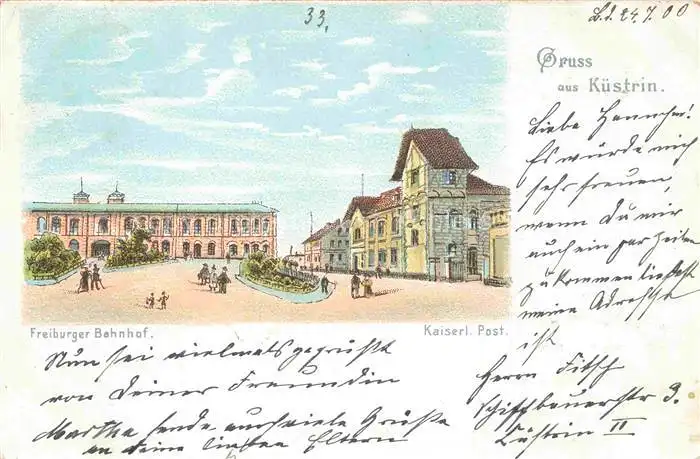 33,
B.d. 24.7.00
Gruss
aus Küstrin.
Liebe Hannchen.
Es würde mich
sehr freuen,
wenn Du mir
auch ein par Zeilen
zukommen ließest
meine Adresse
ist
Herrn Fitsch
Schiffbauerstr 3.
Cüstrin II
Freiburger Bahnhof.
Kaiserl. Post.
Nun sei vielmals gegrüßt
von Deiner Freundin
Martha sende auch viele Grüße
an Deine lieben Eltern